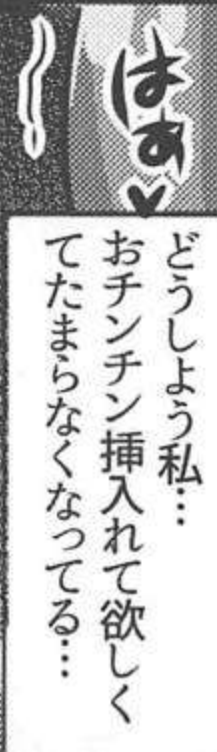 はぁ♥
どうしよう私…
おチンチン挿入れて欲しく
てたまらなくなってる…